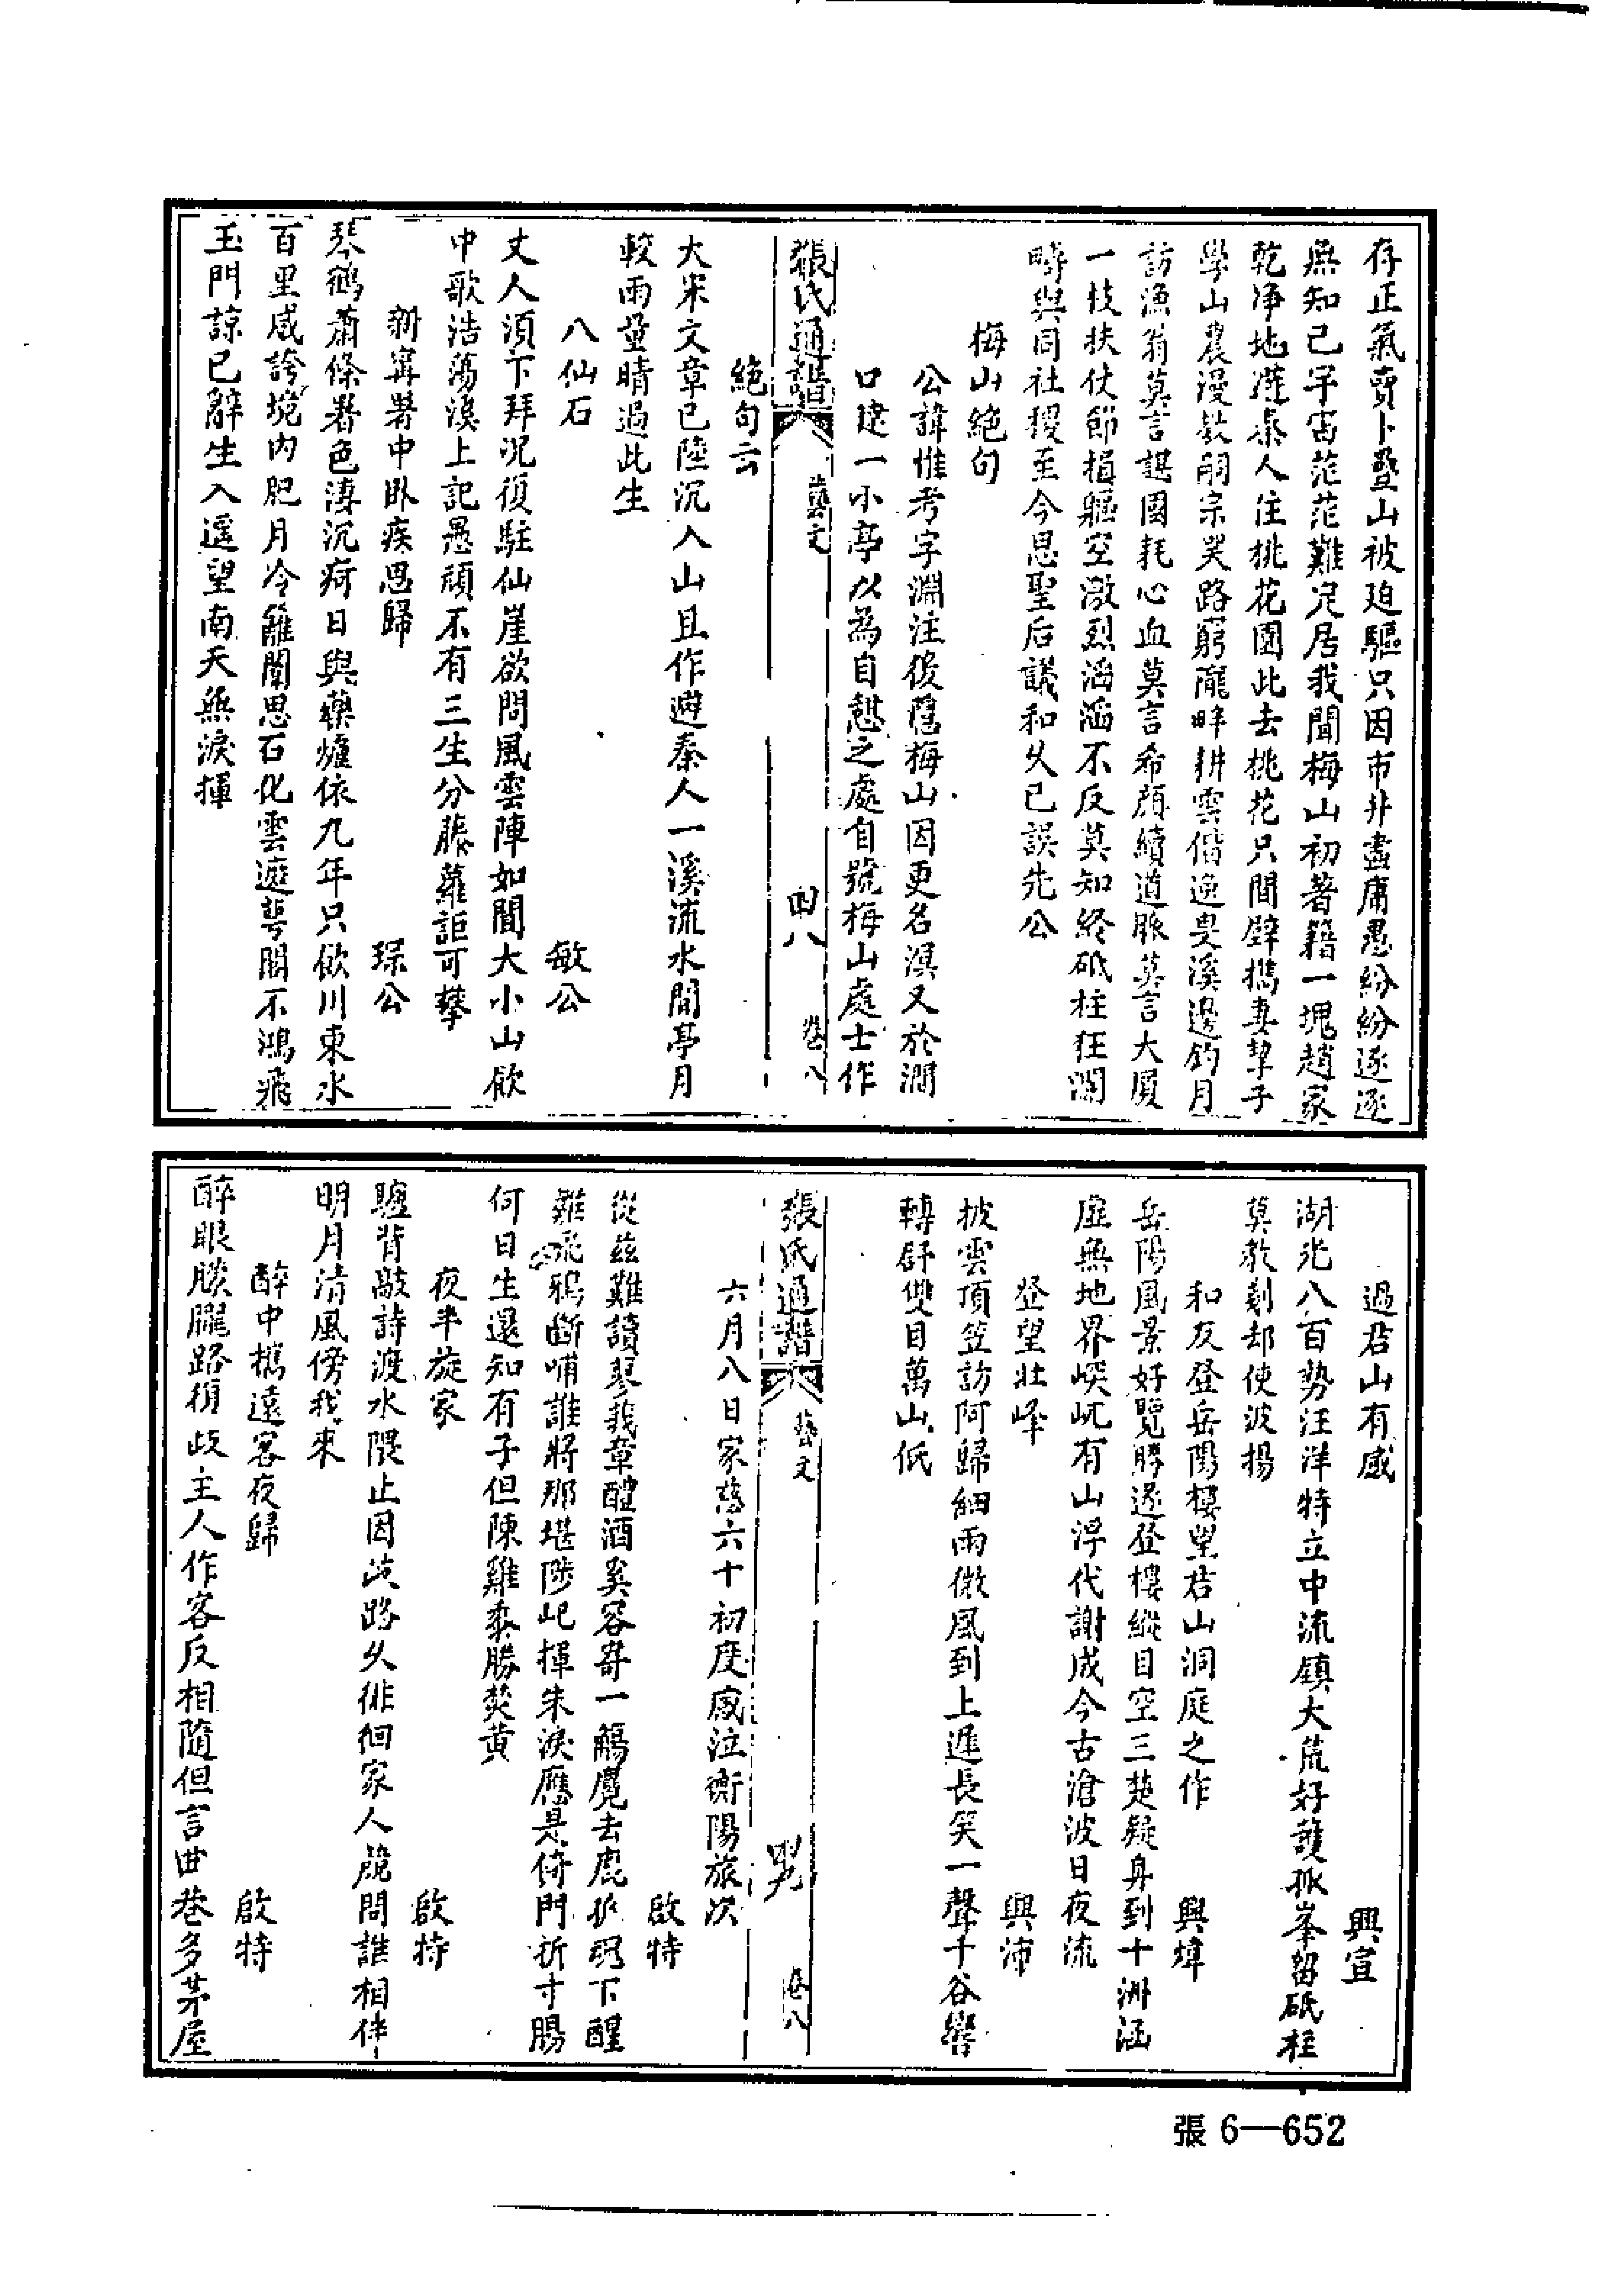 存正氣賣卜疊山被迫驅只因市井盡庸愚紛紛逐逐
無知己宇宙茫茫難定居我聞梅山初著籍一塊趙家
乾净地遊秦人住桃花園此去桃花只間壁攜妻挈子
學山農漫教嗣宗哭路窮隴畔耕雲偕逸叟溪邊釣月
訪漁翁莫言謀國耗心血莫言希顏續道脈莫言大厦
一枝扶仗節損軀空激烈滔滔不反莫知終砥柱狂瀾
疇與同社稷至今思聖后議和久已誤先公
梅山絶句
公諱惟考字淵注後隱梅山因更名溟又於澗
口建一小亭以為自憩之處自號梅山處士作
張氏通譜 藝文 卌八 卷八
絶句云
大宋文章已陸沉入山且作避秦人一溪流水間亭月
較雨量晴過此生
八仙石 敏公
丈人須下拜況復駐仙崖欲問風雲陣如間大小山欣
中歌浩蕩溪上記愚頑不有三生分藤蘿詎可攀
新寗署中卧疾思歸 琮公
琴鶴蕭條署色淒沉疴日與藥爐依九年只飲川東水
百里咸誇境内肥月冷離闈思石化雲遮萼關不鴻飛
玉門諒已辭生入遥望南天無淚揮
過君山有感 興宣
湖光八百勢汪洋特立中流鎮大荒好護孤峯留砥柱
莫教剗却使波揚
和友登岳陽樓望君山洞庭之作 興煒
岳陽風景好覽勝遂登樓縱目空三楚疑身到十洲涵
虚無地界峻屼有山浮代謝成今古滄波日夜流
登望壯峰 興沛
披雲頂笠訪阿歸細雨微風到上遲長笑一聲千谷響
轉群雙目萬山低
張氏通譜 藝文 卌九 卷八
六月八日家慈六十初度感泣衡陽旅次
啟特
從兹難讀蓼莪章醴酒奚容寄一觴魔去鹿 下醒
難飛鴉斷哺誰將那堪陟屺揮朱淚應是倚門折寸腸
何日生還知有子但陳雞黍勝焚黄
夜半旋家 啟特
驢背敲詩渡水隈止因岐路久徘徊家人競問誰相伴
明月清風傍我來
醉中攜遠客夜歸 啟特
醉眼朦朧路徑歧主人作客反相隨但言曲巷多茅屋
張6—652